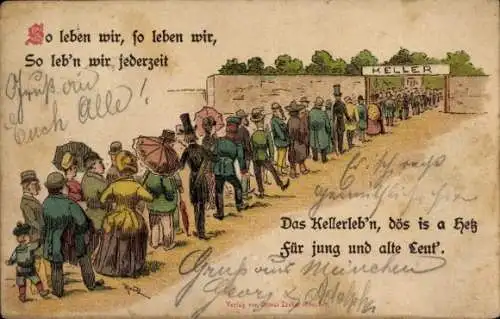 So leben wir, so leben wir,
So leb'n wir jederzeit
KELLER
Gruß an
Euch Alle!
Das Kellerleb'n, dös is a Hetz
Für jung und alte Leut'.
Gruß aus München
Georg & Adolph
Verlag von